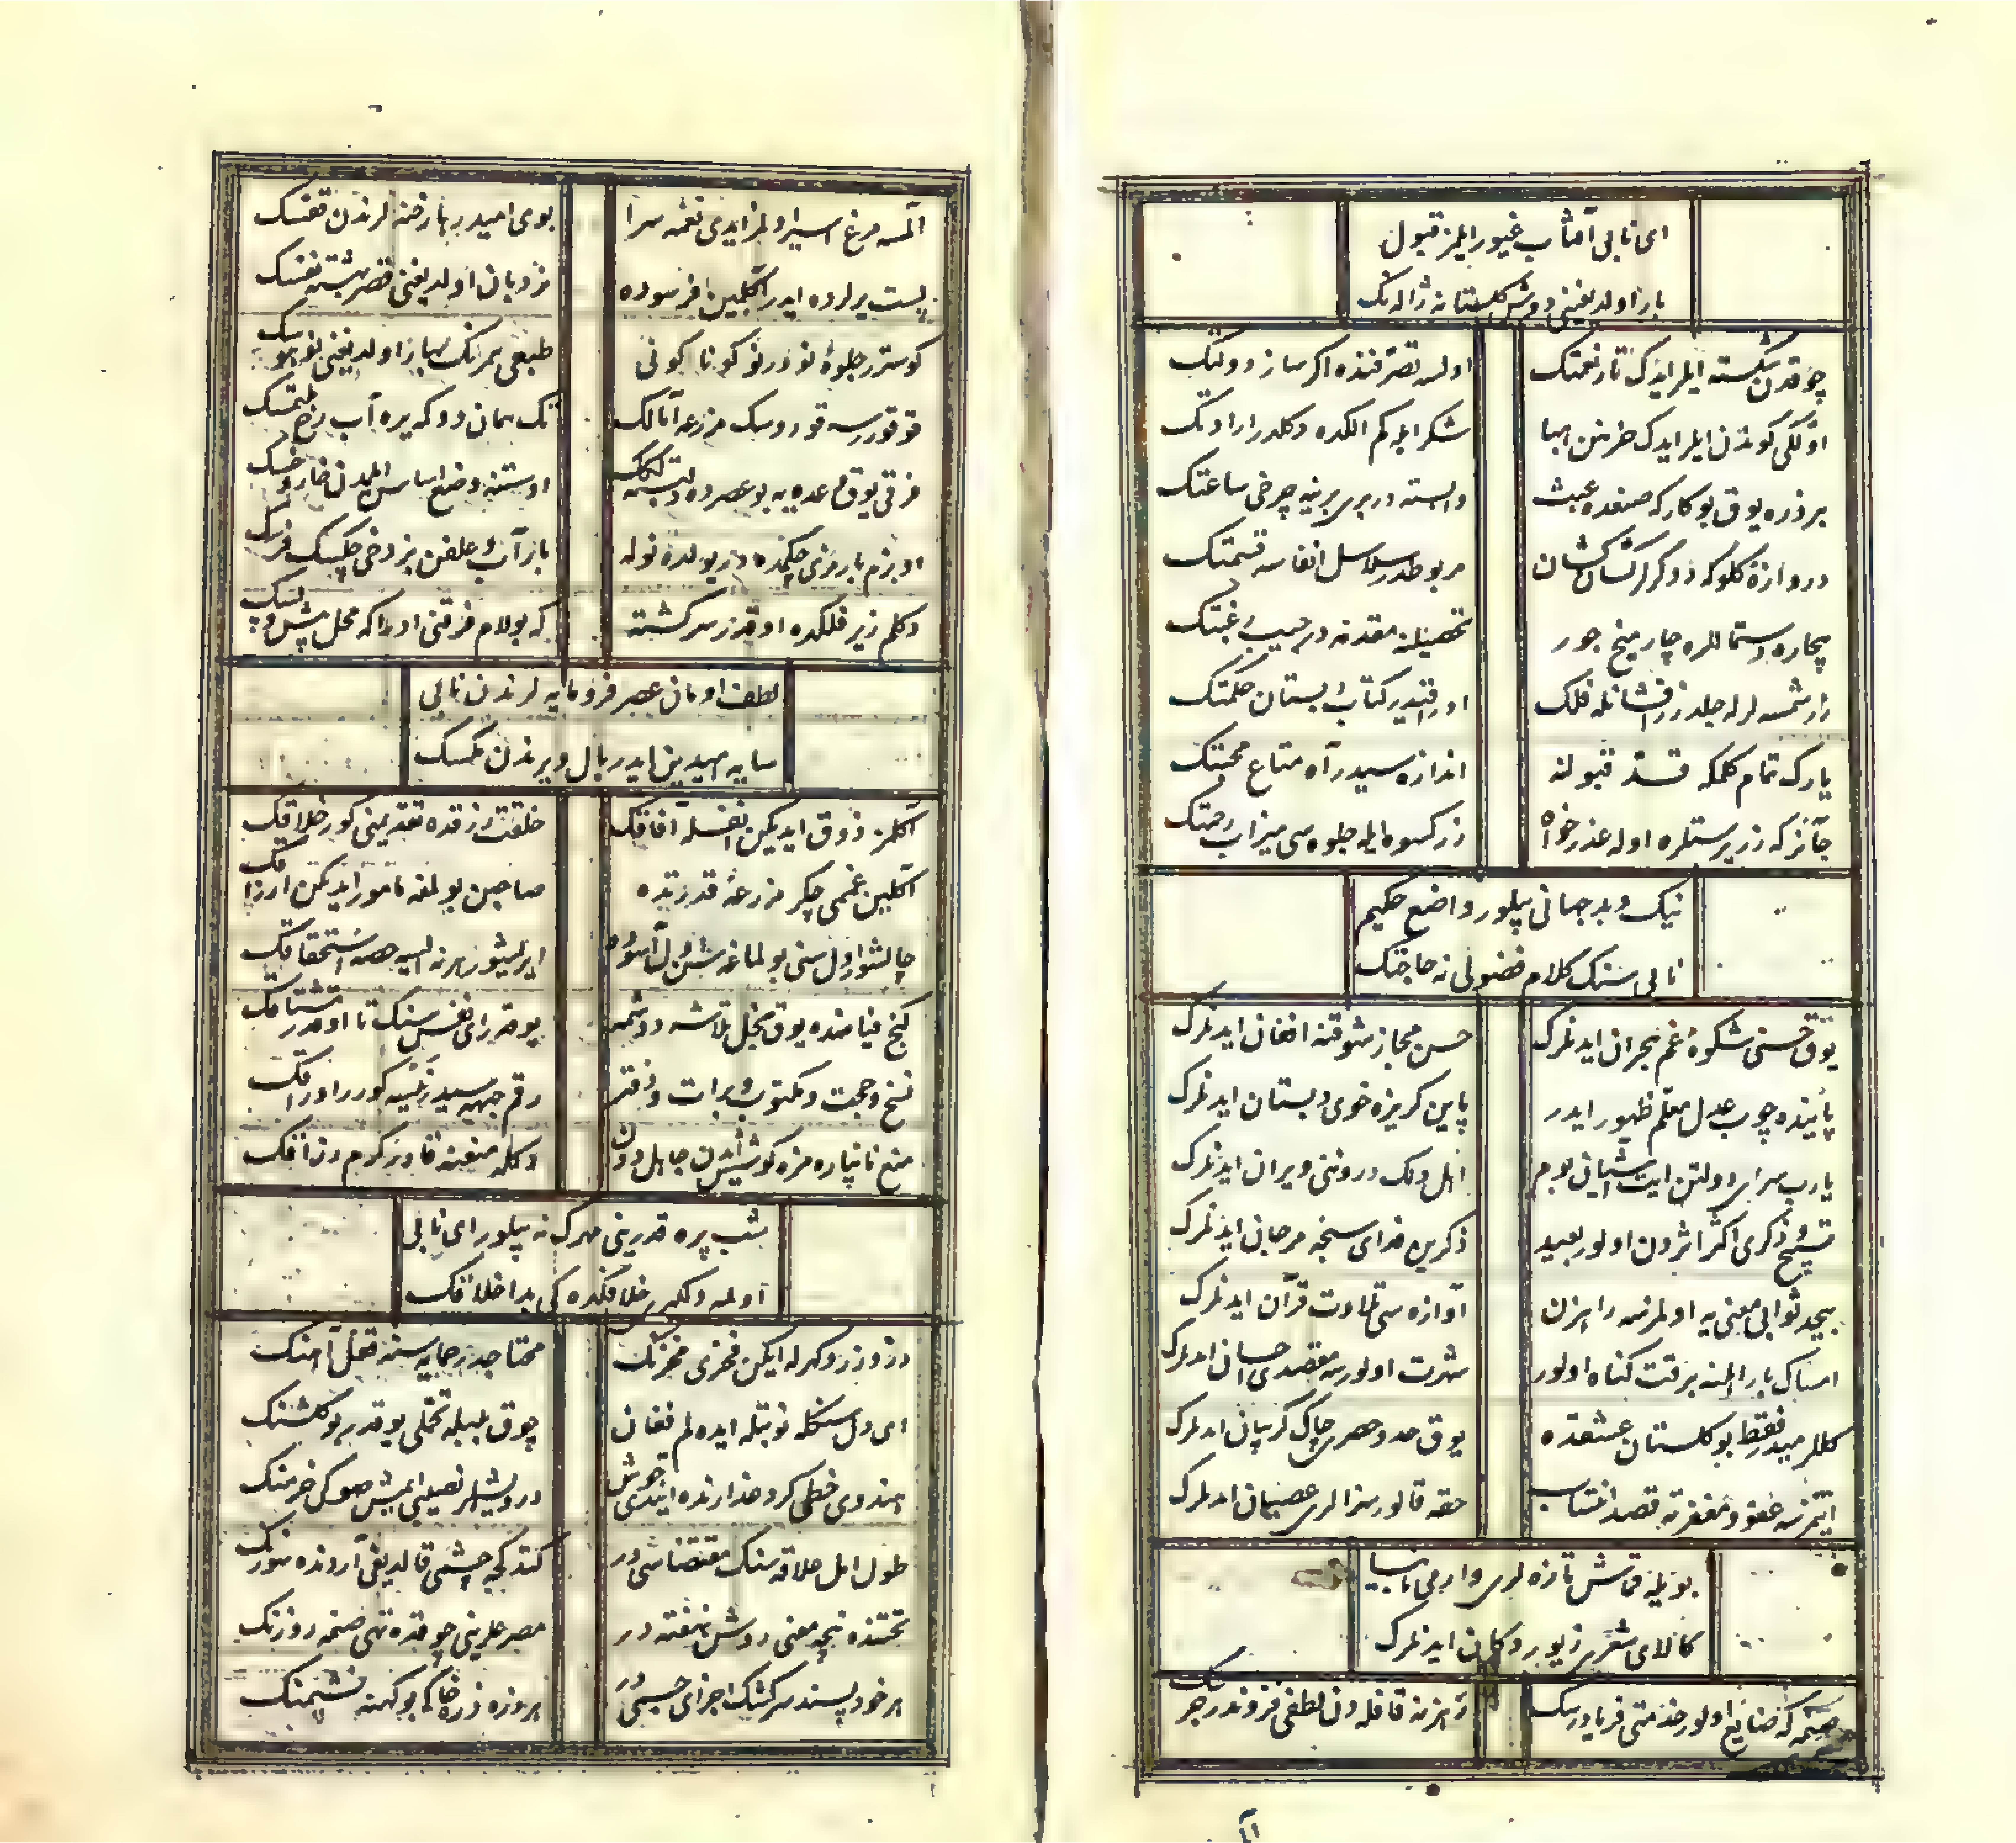 ای نابی آفتاب غیور ایلمز قبول
بار اولدیغنی دوش کلستانه ژاله نک
چوقدن شکسته ایلر ایدک تار نعمتک
اولسه تصرفنده اکر ساز دولتک
اولکی کوندن ایلر ایدک خرمنن هبا
شکر ایله کم الکده دکلدر ارادتک
بر ذره یوق بو کارکه صنعده عبث
وابسته در بری برینه چرخی ساعتک
دروازه کلوکه دوکر لر کشان کشان
مربوطدر سلاسل انفاسه قسمتک
بیچاره دستماللره چار میخ جور
تحصیلنه مقدمه در جیب رغبتک
زر شمسه لرله جلد زر افشانله فلک
اوراقیدر کتاب دبستان حکمتک
یارک تمام کلمکه قد قبولنه
اندازه سیدر آه متاع محبتک
جائز که زر پرستلره اوله عذر خواه
زر کسوه ایله جلوه سی میزاب رحمتک
نیک و بد جهانی بیلور واضع حکیم
نابی سنک کلام فضولی نه حاجتک
یوق حسنی شکوه غم هجران ایدنلرک
حسن مجاز شوقنه افغان ایدنلرک
پاینده چوب عدل معلم ظهور ایدر
پایین کریزه خوی دبستان ایدنلرک
یارب سرای دولتن ایت آشیان بوم
اهل دلک درونی ویران ایدنلرک
تسبیح و ذکری اکثر اثردن اولور بعید
ذکرین فدای سبحه مرجان ایدنلرک
بیحد ثوابی معنی یه اولمزسه راهزن
آوازه سی تلاوت قرآن ایدنلرک
امساک بار المنه برقت کناه اولور
شهرت اولورسه مقصدی احسان ایدنلرک
کللر میدر فقط بو کلستان عشقده
یوق حد و حصری چاک کریبان ایدنلرک
ایتمزسه عفو و مغفرته قصد انتساب
حقه قالور سزالری عصیان ایدنلرک
بویله قماش تازه لری وارمی نابیا
کالای شعری زیور دکان ایدنلرک
صیحه که ضایع اولور خدمتی فریادرسک
رهزنه قافله دن لطفی فزوندر جرسک
آلمسه مرغ اسیر اولمز ایدی نغمه سرا
بوی امید بهار رخنه لرندن قفسک
پست یرلرده ایدر آکلمین افسوده
نردبان اولدیغنی قصر بهشته نفسک
کوسترر جلوه نو در نو کوناکونی
طبعی یرنک بهار اولدیغنی نو هوسک
قوقورسه قوروسک مزرعه آمالک
تک همان دوکه یره آب رخ ملتمسک
فرقی یوق قاعده یه بو عصرده دلبسته لکک
اوستنه وضع اساس ایلمدن خار و خسک
او بزم بار مزی چکمده در یولده نوله
باز آب و علفن بز دخی چکسک فرسک
دکلم زیر فلکده اوقدر سرکشته
که بولام فرقنی اوراکه محل پیش و پسک
لطف اومان عصر فرومایه لرندن نابی
سایه امیدین ایدر بال و پرندن مکسک
آکلمز ذوق ایدیکن انفسله آفاقک
خلقت و رزقده تقدیمنی کور خلاقک
آکلین غمی چکر مزرعه قدرتده
صاحبن بولمغه مامور ایدیکن ارزاقک
چالشور اول سنی بولماغه سن اول آسوده
ایرلیشور هر نه ایسه حصه استحقاقک
کنج فیاضده یوق بخل تلاشه دوشمه
یوقدر ای نفس سنک تا او قدر مشتاقک
نسخ و حجت و مکتوب و برات و دفتر
رقم جبهه سیدر نیسه کورر اوراقک
منع نانپاره مزه کوشش ایدن جاهل دون
دکله منعنه قادر کرم رزاقک
شب پره قدرینی مهرک نه بیلور ای نابی
اولمه دلکیر خلافکده کی بد اخلاقک
در و زر و کهرله ایکن فخری مخزنک
محتاجدر حمایه سنه قفل آهنک
ای دل سنکله نوبتله ایده لم فغان
چوق بلبله تحملی یوقدر بو کلشنک
هندوی خطی کرد عذارنده ایتدی خوش
درویشلر نصیبی ایمش صوکی خرمنک
طول امل علاقه سنک مقتضاسی در
کندکجه چشمی قالدیغی آردنده سوزنک
تختنده نیجه معنی روشن نهفته در
مصرعلرینی چوقده تهی صنمه روزنک
هر خودپسند سرکشک اجزای جسمی در
هر ذره ذره خاکی بو کهنه نشیمنک